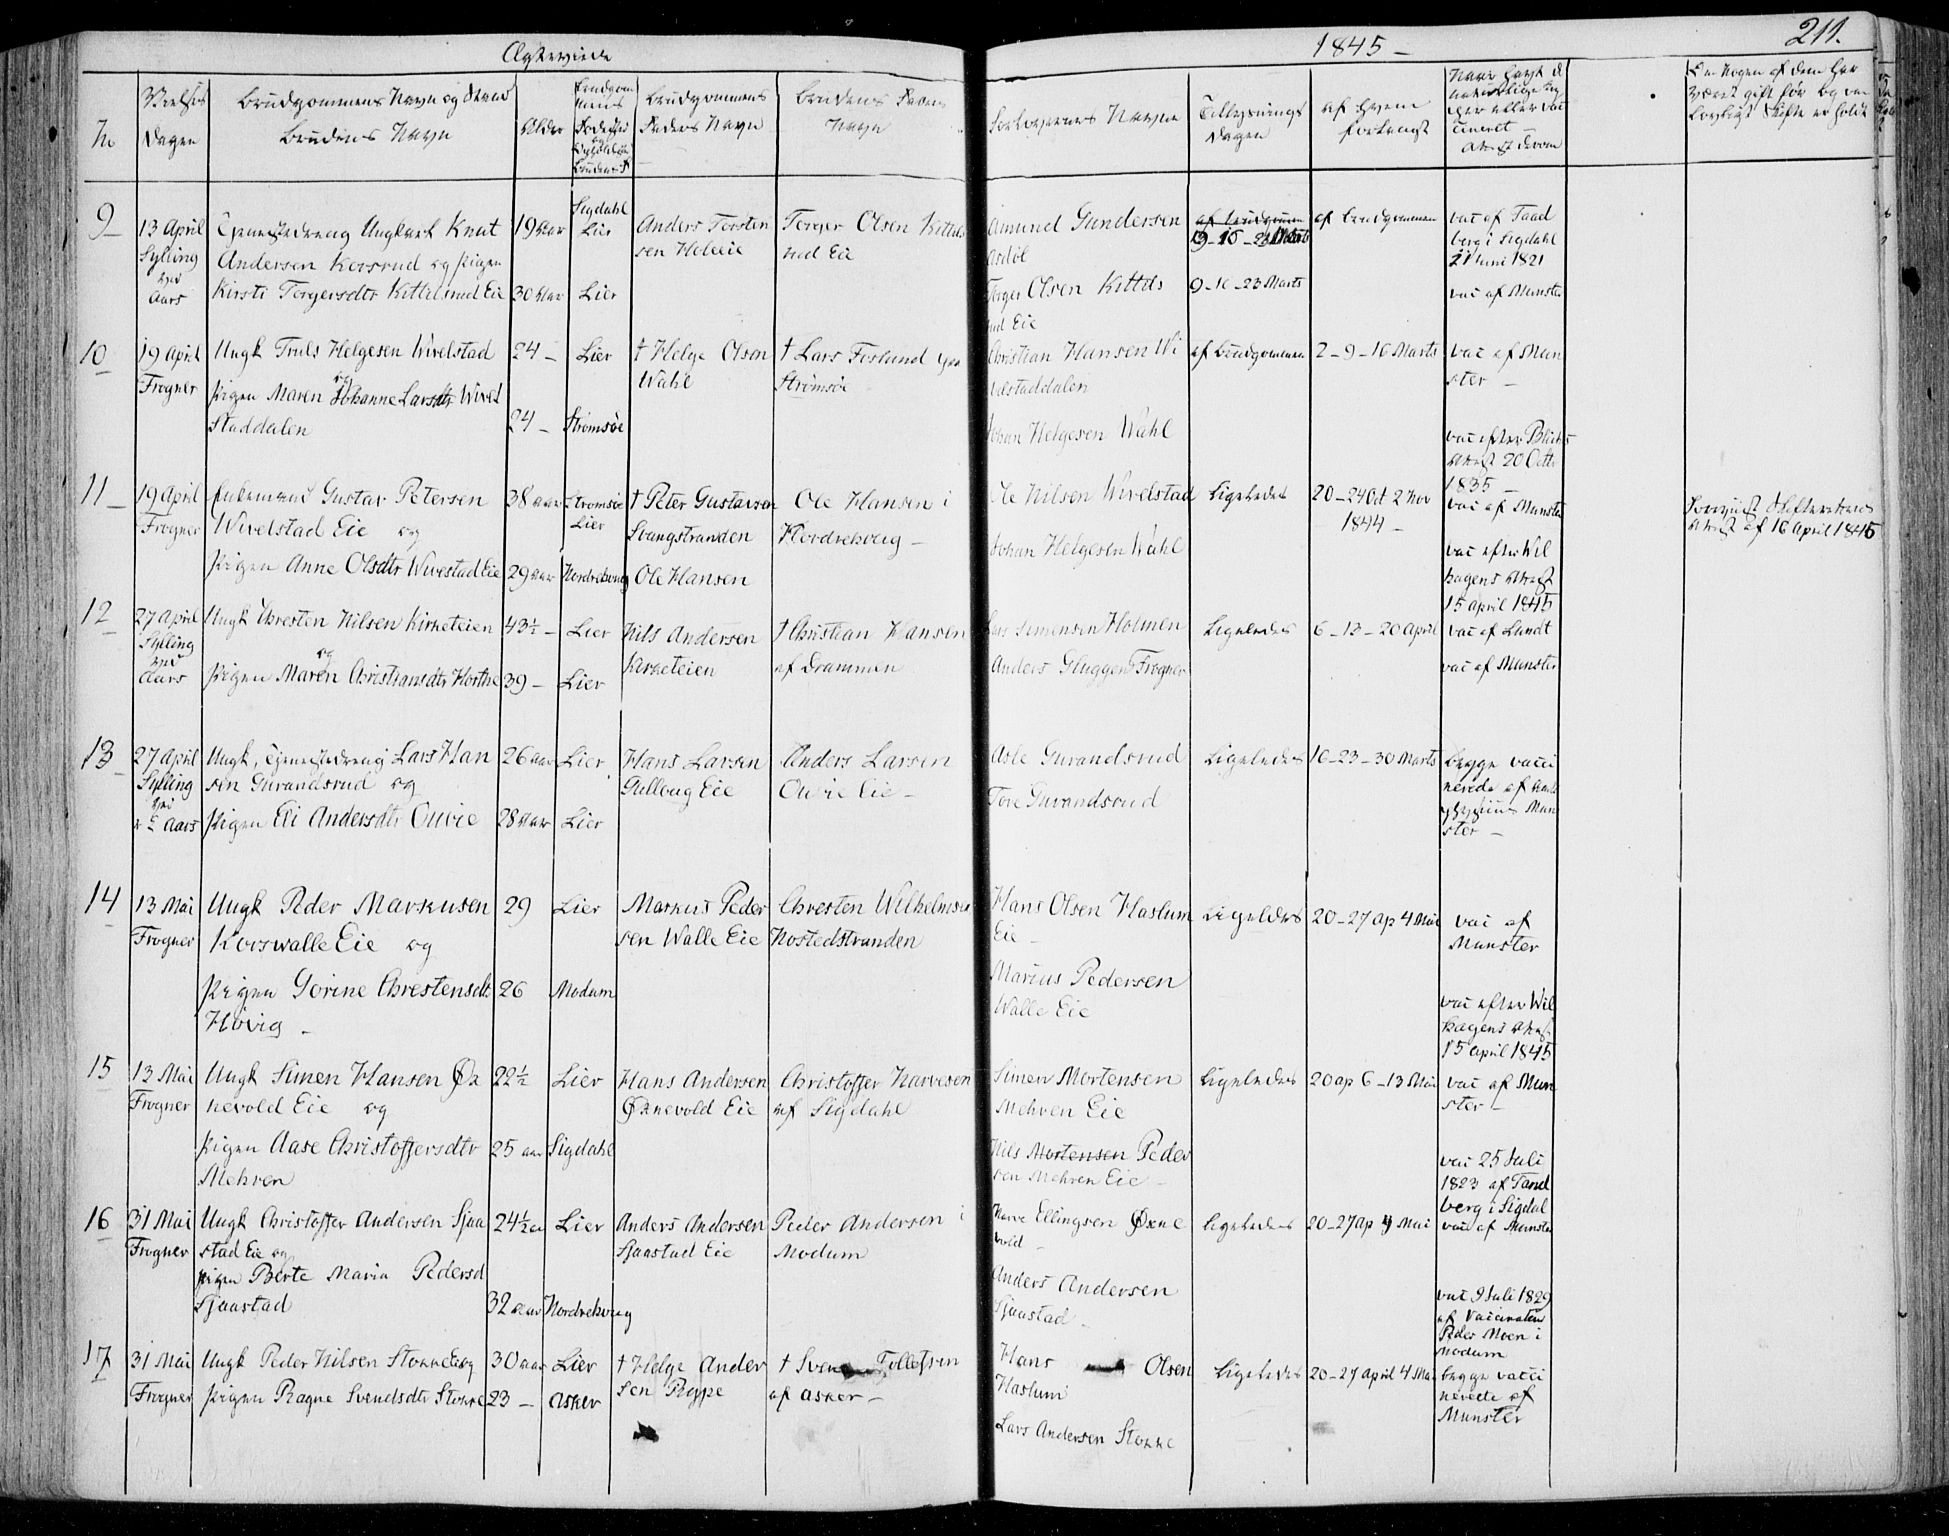 Ægteviede
1845 –
211.
No
Vielses Dagen
Brudgommens Navn og Stand
Brudens Navn
Alder
Brudgommens Fødested og Brudens
Brudgommens Faders Navn
Brudens Faders Navn
Forloverens Navne
Tillysnings Dagen
af hvem forlangt
Have havt de naturlige eller ere vaccineret – Attest derom
Om Nogen af dem har været gift før og om lovligt Skifte er holdt
9 – 13 April Sylling Aars
Tjenestedreng Ungkarl Knut
Andersen Korsrud og Pigen
Kirsti Torgersdtr Kittilsrud Eie
19 Aar
30 Aar
Sigdahl
Lier
Lier
Anders Torsten
sen Holeeie
Torger Olsen Kittils
rud Eie
Amund Gundersen
Asdøl
Torger Olsen Kittils
rud Eie
9–16–23 Marts
9–16–23 Marts
af Brudgommen
vac af Taad
berg i Sigdahl
21 Juni 1821
vac af Munster
10
19 April
Frogner
Ungk Truls Helgesen Wivelstad
og
Pigen Maren Johanne Larsdtr Wivel
staddalen
24 –
24 –
Lier
Strømsøe
† Helge Olsen
Wahl
† Lars Foslund
Strømsøe
Christian Hansen Wi
velstaddalen
Johan Helgesen Wahl
af Brudgommen
2–9–16 Marts
vac af Mun
ster –
vac efter Blichs
Attest 20 Octbr
1835 –
11 –
19 April
Frogner
Enkemand Gustav Petersen
Wivelstad Eie og
Pigen Anne Olsdtr Wivestad Eie
38 Aar
29 Aar
Strømsøe
Lier
Nordrehoug
† Peter Gustavsen
Svangstranden
Ole Hansen
Ole Hansen i
Nordrehoug –
Ole Nilsen Wivelstad
Johan Helgesen Wahl
Ligeledes
20–27 Oct 2 Nov
1844 –
vac af Munster
vac efter Wil
hagens Attest
15 April 1845
Attest af 16 April 1845
12
27 April
Sylling
ved
Aars
Ungk Chresten Nilsen Kirketeien
og
Pigen Maren Christiansdtr Horthe
43½ –
39 –
Lier
Lier
Nils Andersen
Kirketeien
† Christian Hansen
af Drammen
Lars Simensen Holmen
Anders Gluggen Frogner
Ligeledes
6–13–20 April
vac af Lundt
vac af Munster
13 –
27 April
Sylling
Aars
Ungk, Tjenestedreng Lars Han
sen Gurandsrud og
Pigen Eli Andersdtr Ouvie
26 Aar
28 Aar
Lier
Lier
Hans Larsen
Gullaug Eie
Anders Larsen
Ouvie Eie –
Asle Gurandsrud
Tore Gurandsrud
Ligeledes
16–23–30 Marts
begge vacci
nerede af
Mun
ster –
14
13 Mai
Frogner
Ungk Peder Markusen
Korswalle Eie og
Pigen Gorine Chrestensdtr
Høvig –
29
26
Lier
Modum
Markus Peder
sen Walle Eie
Chresten Wilhelmsen
Hostedstranden
Hans Olsen Haslum
Eie –
Marius Pedersen
Walle Eie
Ligeledes
20–27 Ap 4 Mai
vac af
Munster
vac efter Wil
hagens Attest
15 April 1845
15
13 Mai
Frogner
Ungk Simen Hansen Øx
nevold Eie og
Pigen Aase Christoffersdtr
Mehren
22½
25 Aar
Lier
Sigdahl
Hans Andersen
Øxnevold Eie
Christoffer Narvesen
af Sigdahl
Simen Mortensen
Mehren Eie
Nils Mortensen Peder
sen Mehren Eie –
Ligeledes
20 Ap 6–13 Mai
vac af Mun
ster –
vac 25 Juli
1823 af Tand
berg i Sigdal
16
31 Mai
Frogner
Ungk Christoffer Andersen Sjaa
stad Eie og
Pigen Berte Maria Pedersd
Sjaastad
24½ Aar
32 Aar
Lier
Nordrehoug
Anders Andersen
Sjaastad Eie
Peder Andersen i
Modum
Narve Ellingsen Øxne
vold –
Anders Andersen
Sjaastad –
Ligeledes
20–27 Ap 4 Mai
vac af Munster
vac 9 Juli 1829
af Vaccinateur
Peder Moen i
Modum
17
31 Mai
Frogner
Ungk Peder Nilsen Stokke Eie og
Pigen Ragne Svendsdtr Stokke
30 Aar
23 –
Lier
Asker
† Helge Ander
sen Rype
† Svend Tollefsen
af Asker –
Hans Olsen
Haslum
Lars Andersen Stokke
Ligeledes
20–27 April 4 Mai
begge vacci
nerede af
Munster